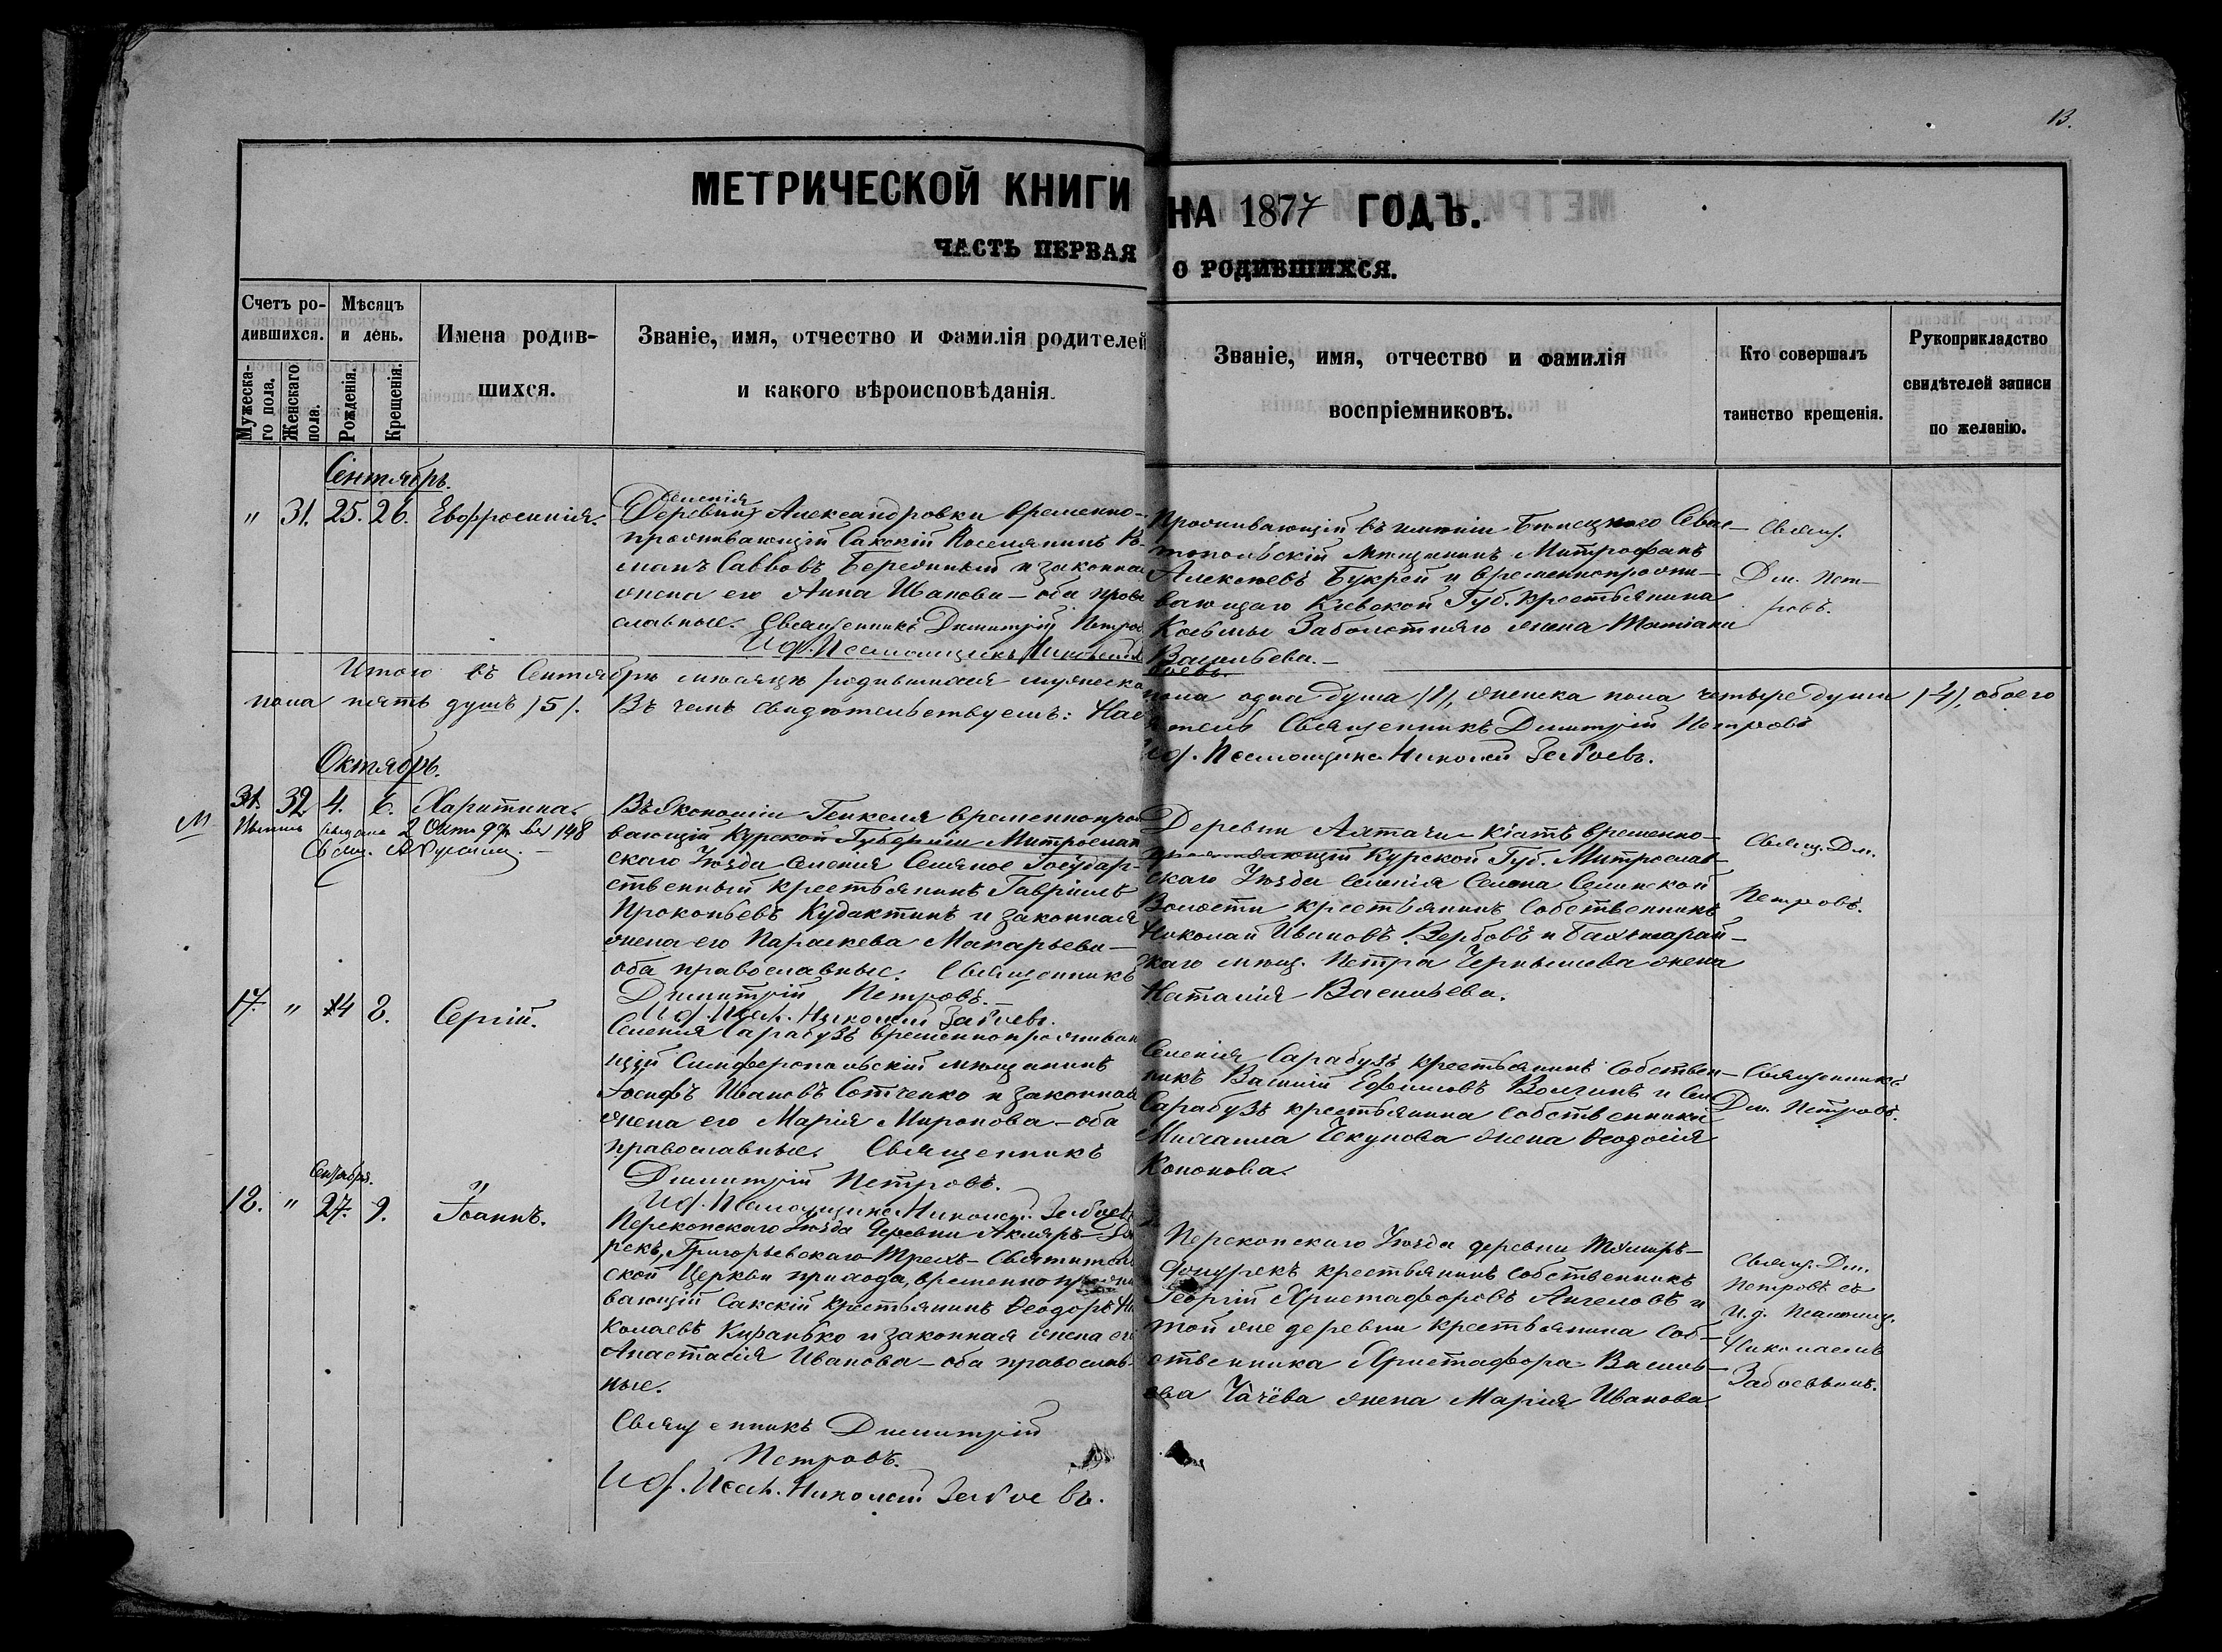 13.
МЕТРИЧЕСКОЙ КНИГИ НА 1877 ГОДЪ.
ЧАСТЬ ПЕРВАЯ О РОДИВШИХСЯ.
Счетъ ро-
дившихся.
Мужеска-
го пола.
Женскаго
пола.
Мѣсяцъ
и день.
Рожденія.
Крещенія.
Имена родив-
шихся.
Званіе, имя, отчество и фамилія родителей
и какого вѣроисповѣданія.
Званіе, имя, отчество и фамилія
воспріемниковъ.
Кто совершалъ
таинство крещенія.
Рукоприкладство
свидѣтелей записи
по желанію.
Сентябрь.
" 31. 25. 26. Евфросинія.
селенія
Деревни Александровки временно-
проживающій Сакскій Поселянинъ Ро-
манъ Саввовъ Бережный и законная
жена его Анна Иванова – оба право
славные. Священникъ Димитрій Петровъ
И. д. Псаломщика Николай
Проживающій въ имѣніи Сева-
стопольскій Мѣщанинъ Митрофанъ
Алексѣевъ Букрей и временнопрожи-
вающаго Кіевской Губ. крестьянина
Косьмы Заболотняго жена Татіана
Васильева.
Священ.
Дм. Пет-
ровъ.
Итого въ Сентябрѣ мѣсяцѣ родившихся мужеска пола одна душа (1), женска пола четыре души (4), обоего
пола пять душъ (5). Въ чемъ свидѣтельствуемъ: Настоятель Священникъ Димитрій Петровъ
И. д. Псаломщика Николай Забоевъ.
Октябрь.
М
31. 32 4. 6. Харитина.
148
Въ Экономіи Генкеля временнопрожи
вающій Курской Губерніи Митрослав
скаго Уѣзда селенія Государ-
ственный крестьянинъ Гавріилъ
Прокопьевъ Кудактинъ и законная
жена его Параскева Макарьева –
оба православные. Священникъ
Димитрій Петровъ.
И. д. Псал. Николай Забоевъ.
Деревни Алтачи-Кіатъ временно-
проживающій Курской Губ. Митрослав-
скаго Уѣзда селенія
Волости крестьянинъ собственникъ
Николай Ивановъ Вербовъ и Бахчисарай-
скаго мѣщ. Петра Чернышева жена
Наталія Васильева.
Священ. Дм.
Петровъ.
17. " 4 8. Сергій.
Селенія Сарабузъ временнопроживаю
щій Симферопольскій мѣщанинъ
Іосифъ Ивановъ Сотченко и законная
жена его Марія Миронова – оба
православные. Священникъ
Димитрій Петровъ.
И. д. Псаломщика Николай Забоевъ
Селенія Сарабузъ крестьянинъ собствен-
никъ Василій Ефимовъ Волгинъ и сел.
Сарабузъ крестьянина собственника
Михаила Чекунова жена Ѳеодосія
Кононова.
Священникъ
Дм. Петровъ.
Сентября.
18. " 27. 9. Іоаннъ.
Перекопскаго Уѣзда деревни
рекъ, Григорьевскаго Трехъ-Святитель
ской Церкви прихода, временно прожи
вающій Сакскій крестьянинъ Ѳеодоръ Ни
колаевъ Киранько и законная жена его
Анастасія Иванова – оба православ-
ные.
Священникъ Димитрій
Петровъ.
И. д. Псал. Николай Забоевъ.
Перекопскаго Уѣзда деревни
крестьянинъ собственникъ
Георгій Христафоровъ Ангеловъ и
той же деревни крестьянина соб-
ственника Христафора Василь-
ева Чачёва жена Марія Иванова
Священ. Дм.
Петровъ съ
И. д. Псаломщ.
Николаемъ
Забоевымъ.